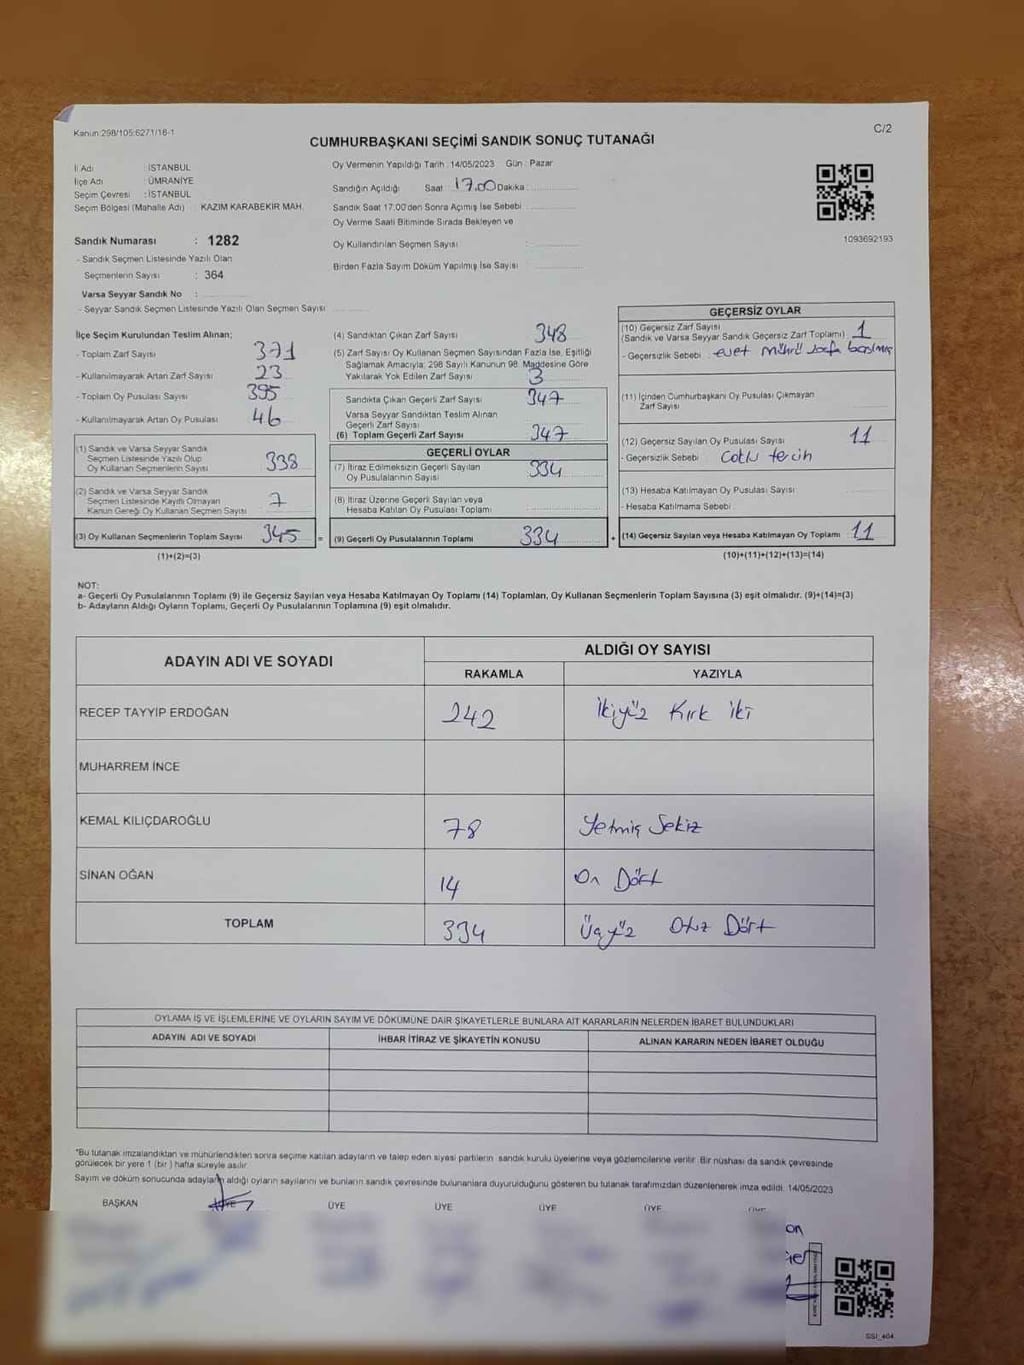 Kanun:298/105:6271/18-1
C/2
CUMHURBAŞKANI SEÇİMİ SANDIK SONUÇ TUTANAĞI
İl Adı : İSTANBUL
İlçe Adı : ÜMRANİYE
Seçim Çevresi : İSTANBUL
Seçim Bölgesi (Mahalle Adı) KAZIM KARABEKİR MAH.
Sandık Numarası : 1282
- Sandık Seçmen Listesinde Yazılı Olan
Seçmenlerin Sayısı : 364
Varsa Seyyar Sandık No :
- Seyyar Sandık Seçmen Listesinde Yazılı Olan Seçmen Sayısı
Oy Vermenin Yapıldığı Tarih : 14/05/2023 Gün : Pazar
Sandığın Açıldığı Saat 17.00 Dakika :
Sandık Saat 17:00'den Sonra Açımış İse Sebebi
Oy Verme Saali Bitiminde Sırada Bekleyen ve
Oy Kullandırılan Seçmen Sayısı :
Birden Fazla Sayım Döküm Yapılmış İse Sayısı :
1093692193
İlçe Seçim Kurulundan Teslim Alınan;
- Toplam Zarf Sayısı 371
- Kullanılmayarak Artan Zarf Sayısı 23
- Toplam Oy Pusulası Sayısı 395
- Kullanılmayarak Artan Oy Pusulası 46
(1) Sandık ve Varsa Seyyar Sandık
Seçmen Listesinde Yazılı Olup
Oy Kullanan Seçmenlerin Sayısı 338
(2) Sandık ve Varsa Seyyar Sandık
Seçmen Listesinde Kayıtlı Olmayan
Kanun Gereği Oy Kullanan Seçmen Sayısı 7
(3) Oy Kullanan Seçmenlerin Toplam Sayısı 345 =
(1)+(2)=(3)
(4) Sandıktan Çıkan Zarf Sayısı 348
(5) Zarf Sayısı Oy Kullanan Seçmen Sayısından Fazla İse, Eşitliği
Sağlamak Amacıyla; 298 Sayılı Kanunun 98. Maddesine Göre
Yakılarak Yok Edilen Zarf Sayısı 3
Sandıkta Çıkan Geçerli Zarf Sayısı 347
Varsa Seyyar Sandıktan Teslim Alınan
Geçerli Zarf Sayısı
(6) Toplam Geçerli Zarf Sayısı 347
GEÇERLİ OYLAR
(7) İtiraz Edilmeksizin Geçerli Sayılan
Oy Pusulasının Sayısı 334
(8) İtiraz Üzerine Geçerli Sayılan veya
Hesaba Katılan Oy Pusulası Toplamı
(9) Geçerli Oy Pusulalarının Toplamı 334 +
GEÇERSİZ OYLAR
(10) Geçersiz Zarf Sayısı
(Sandık ve Varsa Seyyar Sandık Geçersiz Zarf Toplamı) 1
- Geçersizlik Sebebi evet mührü zarfa basılmış
(11) İçinden Cumhurbaşkanı Oy Pusulası Çıkmayan
Zarf Sayısı
(12) Geçersiz Sayılan Oy Pusulası Sayısı 11
- Geçersizlik Sebebi Coklu tercih
(13) Hesaba Katılmayan Oy Pusulası Sayısı
- Hesaba Katılmama Sebebi
(14) Geçersiz Sayılan veya Hesaba Katılmayan Oy Toplamı 11
(10)+(11)+(12)+(13)=(14)
NOT:
a- Geçerli Oy Pusulalarının Toplamı (9) ile Geçersiz Sayılan veya Hesaba Katılmayan Oy Toplamı (14) Toplamları, Oy Kullanan Seçmenlerin Toplam Sayısına (3) eşit olmalıdır. (9)+(14)=(3)
b- Adayların Aldığı Oyların Toplamı, Geçerli Oy Pusulalarının Toplamına (9) eşit olmalıdır.
ADAYIN ADI VE SOYADI
ALDIĞI OY SAYISI
RAKAMLA YAZIYLA
RECEP TAYYİP ERDOĞAN 242 İkiyüz Kırk iki
MUHARREM İNCE
KEMAL KILIÇDAROĞLU 78 Yetmiş Sekiz
SİNAN OĞAN 14 On Dört
TOPLAM 334 Üçyüz Otuz Dört
OYLAMA İŞ VE İŞLEMLERİNE VE OYLARIN SAYIM VE DÖKÜMÜNE DAİR ŞİKAYETLERLE BUNLARA AİT KARARLARIN NELERDEN İBARET BULUNDUKLARI
ADAYIN ADI VE SOYADI İHBAR İTİRAZ VE ŞİKAYETİN KONUSU ALINAN KARARIN NEDEN İBARET OLDUĞU
*Bu tutanak imzalandıktan ve mühürlendikten sonra seçime katılan adayların ve talep eden siyasi partilerin sandık kurulu üyelerine veya gözlemcilerine verilir. Bir nüshası da sandık çevresinde
görülecek bir yere 1 (bir) hafta süreyle asılır.
Sayım ve döküm sonucunda adayların aldığı oyların sayılarını ve bunların sandık çevresinde bulunanlara duyurulduğunu gösteren bu tutanak tarafımızdan düzenlenerek imza edildi. 14/05/2023
BAŞKAN ÜYE ÜYE ÜYE ÜYE ÜYE
SSI_404